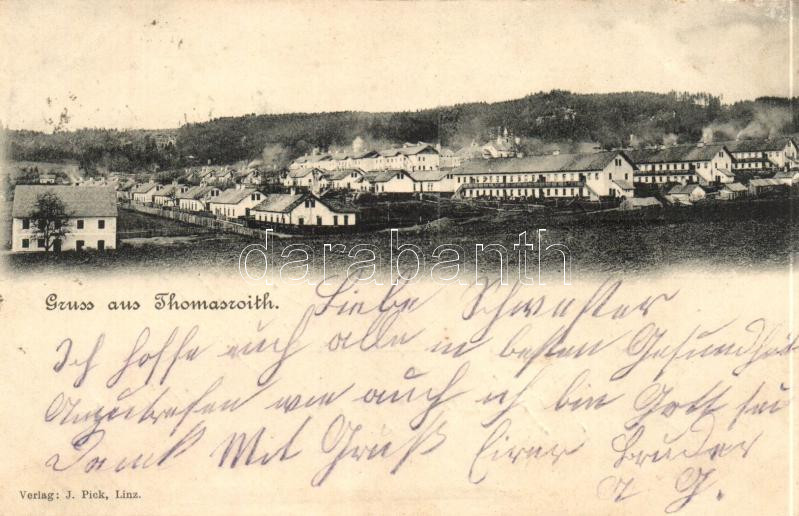 darabanth
Gruss aus Thomasroith.
Liebe Schwester
Ich hoffe euch alle in besten Gesundheit
Anzutrefen wie auch ich bin Gott sei
Dank Mit Gruß Eirer Bruder
G.
Verlag: J. Pick, Linz.